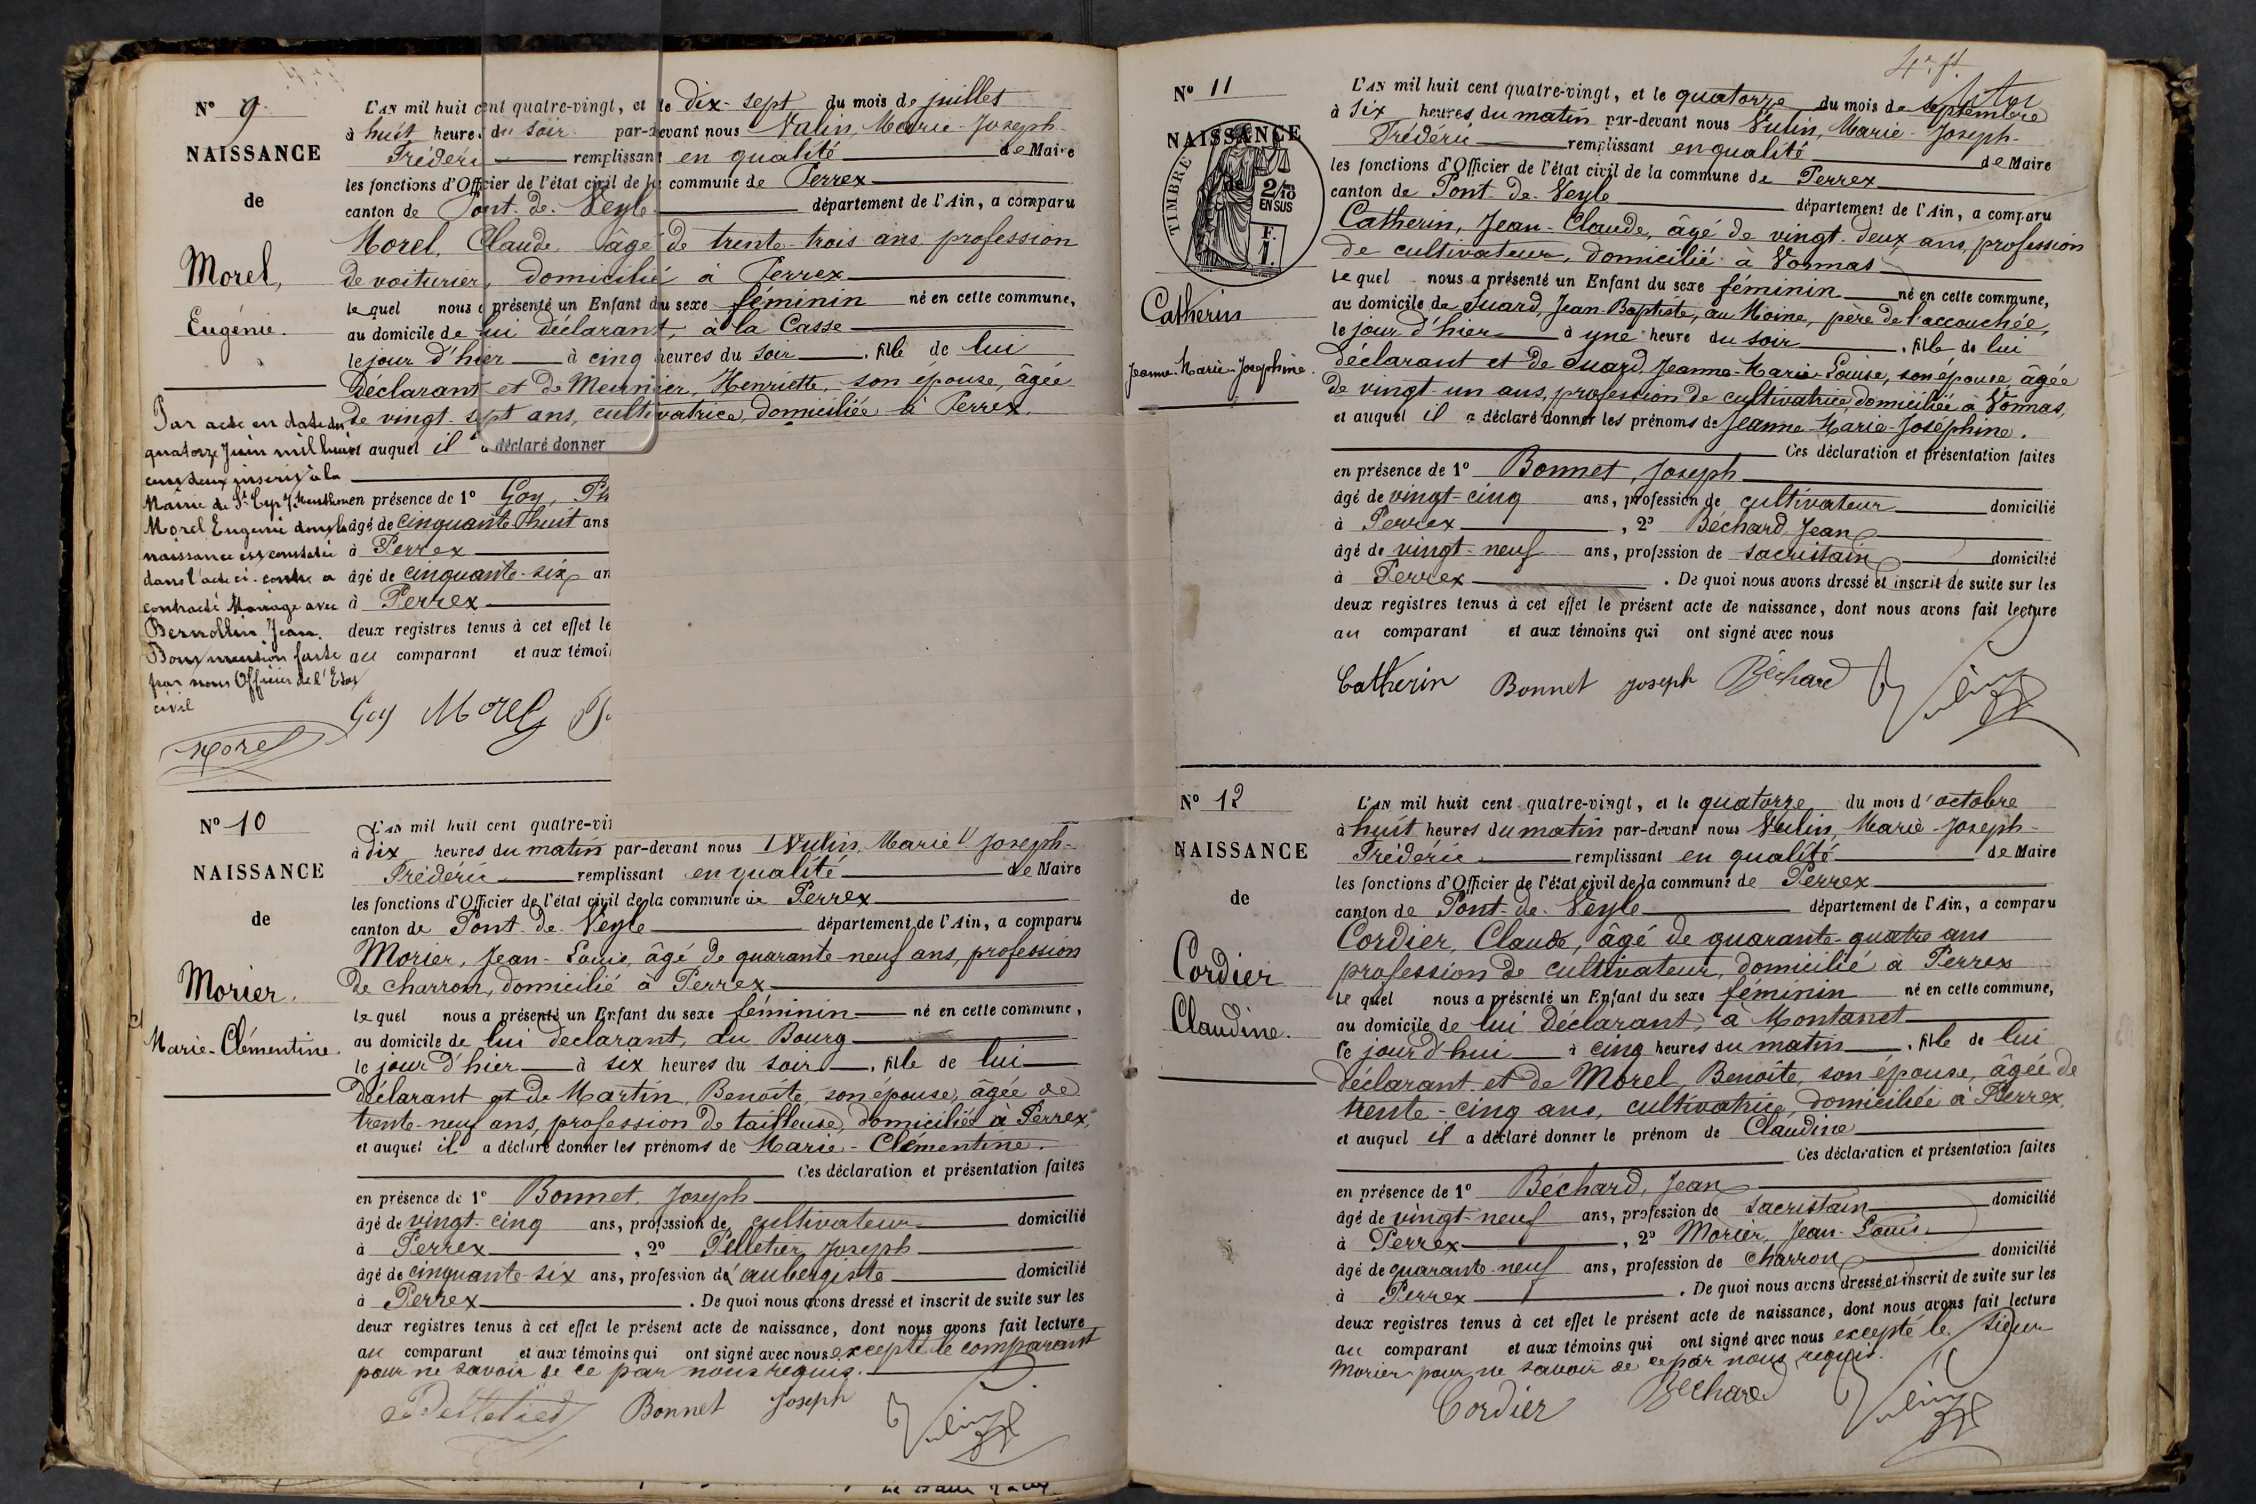 N° 9
NAISSANCE
de
Morel,
Eugénie.
Par acte en date du
quatorze Juin mil huit
cent deux inscrit à la
Mairie de St Cyr s/ Menthon
Morel Eugénie dont la
naissance est constatée
dans l'acte ci-contre a
contracté Mariage avec
Bernollin Jean.
Pour mention faite
par nous Officier de l'Etat
civil
Morel
L'AN mil huit cent quatre-vingt, et le dix-sept du mois de juillet
à huit heures du soir par-devant nous Vulin, Marie-Joseph-
Frédéric remplissant en qualité de Maire
les fonctions d'Officier de l'état civil de la commune de Perrex
canton de Pont-de-Veyle département de l'Ain, a comparu
Morel, Claude, âgé de trente-trois ans profession
de voiturier, domicilié à Perrex
lequel nous a présenté un Enfant du sexe féminin né en cette commune,
au domicile de lui déclarant, à la Casse
le jour d'hier à cinq heures du soir, fille de lui
déclarant et de Meunier, Henriette, son épouse, âgée
de vingt-sept ans, cultivatrice, domiciliée à Perrex.
et auquel il a déclaré donner
en présence de 1° Goy, Ph
âgé de cinquante-huit ans
à Perrex
âgé de cinquante-six an
à Perrex
deux registres tenus à cet effet le
au comparant et aux témoi
Goy Morel
N° 10
NAISSANCE
de
Morier,
Marie-Clémentine.
L'AN mil huit cent quatre-vi
à dix heures du matin par-devant nous Vulin, Marie Joseph-
Frédéric remplissant en qualité de Maire
les fonctions d'Officier de l'état civil de la commune de Perrex
canton de Pont-de-Veyle département de l'Ain, a comparu
Morier, Jean-Louis, âgé de quarante-neuf ans, profession
de charron, domicilié à Perrex
lequel nous a présenté un Enfant du sexe féminin né en cette commune,
au domicile de lui déclarant, au Bourg
le jour d'hier à six heures du soir, fille de lui
déclarant et de Martin, Benoîte, son épouse, âgée de
trente-neuf ans, profession de tailleuse, domiciliée à Perrex,
et auquel il a déclaré donner les prénoms de Marie-Clémentine.
Ces déclaration et présentation faites
en présence de 1° Bonnet, Joseph
âgé de vingt-cinq ans, profession de cultivateur domicilié
à Perrex, 2° Pelletier, Joseph
âgé de cinquante-six ans, profession d'aubergiste domicilié
à Perrex. De quoi nous avons dressé et inscrit de suite sur les
deux registres tenus à cet effet le présent acte de naissance, dont nous avons fait lecture
au comparant et aux témoins qui ont signé avec nous excepté le comparant
pour ne savoir de ce par nous requis.
Pelletier Bonnet Joseph Vulin
4e ft
N° 11
NAISSANCE
de
TIMBRE
2/10
EN SUS
F.
1.
Catherin
Jeanne-Marie-Joséphine.
L'AN mil huit cent quatre-vingt, et le quatorze du mois de septembre
à six heures du matin par-devant nous Vulin, Marie-Joseph-
Frédéric remplissant en qualité de Maire
les fonctions d'Officier de l'état civil de la commune de Perrex
canton de Pont-de-Veyle département de l'Ain, a comparu
Catherin, Jean-Claude, âgé de vingt-deux ans, profession
de cultivateur, domicilié à Vonnas
lequel nous a présenté un Enfant du sexe féminin né en cette commune,
au domicile de Suard, Jean-Baptiste, au Moine, père de l'accouchée,
le jour d'hier à une heure du soir, fille de lui
déclarant et de Suard, Jeanne-Marie-Louise, son épouse, âgée
de vingt-un ans, profession de cultivatrice, domiciliée à Vonnas,
et auquel il a déclaré donner les prénoms de Jeanne-Marie-Joséphine.
Ces déclaration et présentation faites
en présence de 1° Bonnet, Joseph
âgé de vingt-cinq ans, profession de cultivateur domicilié
à Perrex, 2° Béchard, Jean
âgé de vingt-neuf ans, profession de sacristain domicilié
à Perrex. De quoi nous avons dressé et inscrit de suite sur les
deux registres tenus à cet effet le présent acte de naissance, dont nous avons fait lecture
au comparant et aux témoins qui ont signé avec nous
Catherin Bonnet Joseph Béchard Vulin
N° 12
NAISSANCE
de
Cordier
Claudine.
L'AN mil huit cent quatre-vingt, et le quatorze du mois d'octobre
à huit heures du matin par-devant nous Vulin, Marie-Joseph-
Frédéric remplissant en qualité de Maire
les fonctions d'Officier de l'état civil de la commune de Perrex
canton de Pont-de-Veyle département de l'Ain, a comparu
Cordier, Claude, âgé de quarante-quatre ans
profession de cultivateur, domicilié à Perrex
lequel nous a présenté un Enfant du sexe féminin né en cette commune,
au domicile de lui déclarant, à Montanet
le jour d'hui à cinq heures du matin, fille de lui
déclarant et de Morel, Benoîte, son épouse, âgée de
trente-cinq ans, cultivatrice, domiciliée à Perrex,
et auquel il a déclaré donner le prénom de Claudine
Ces déclaration et présentation faites
en présence de 1° Béchard, Jean
âgé de vingt-neuf ans, profession de sacristain domicilié
à Perrex, 2° Morier, Jean-Louis
âgé de quarante-neuf ans, profession de charron domicilié
à Perrex. De quoi nous avons dressé et inscrit de suite sur les
deux registres tenus à cet effet le présent acte de naissance, dont nous avons fait lecture
au comparant et aux témoins qui ont signé avec nous excepté le sieur
Morier pour ne savoir de ce par nous requis.
Cordier Béchard Vulin